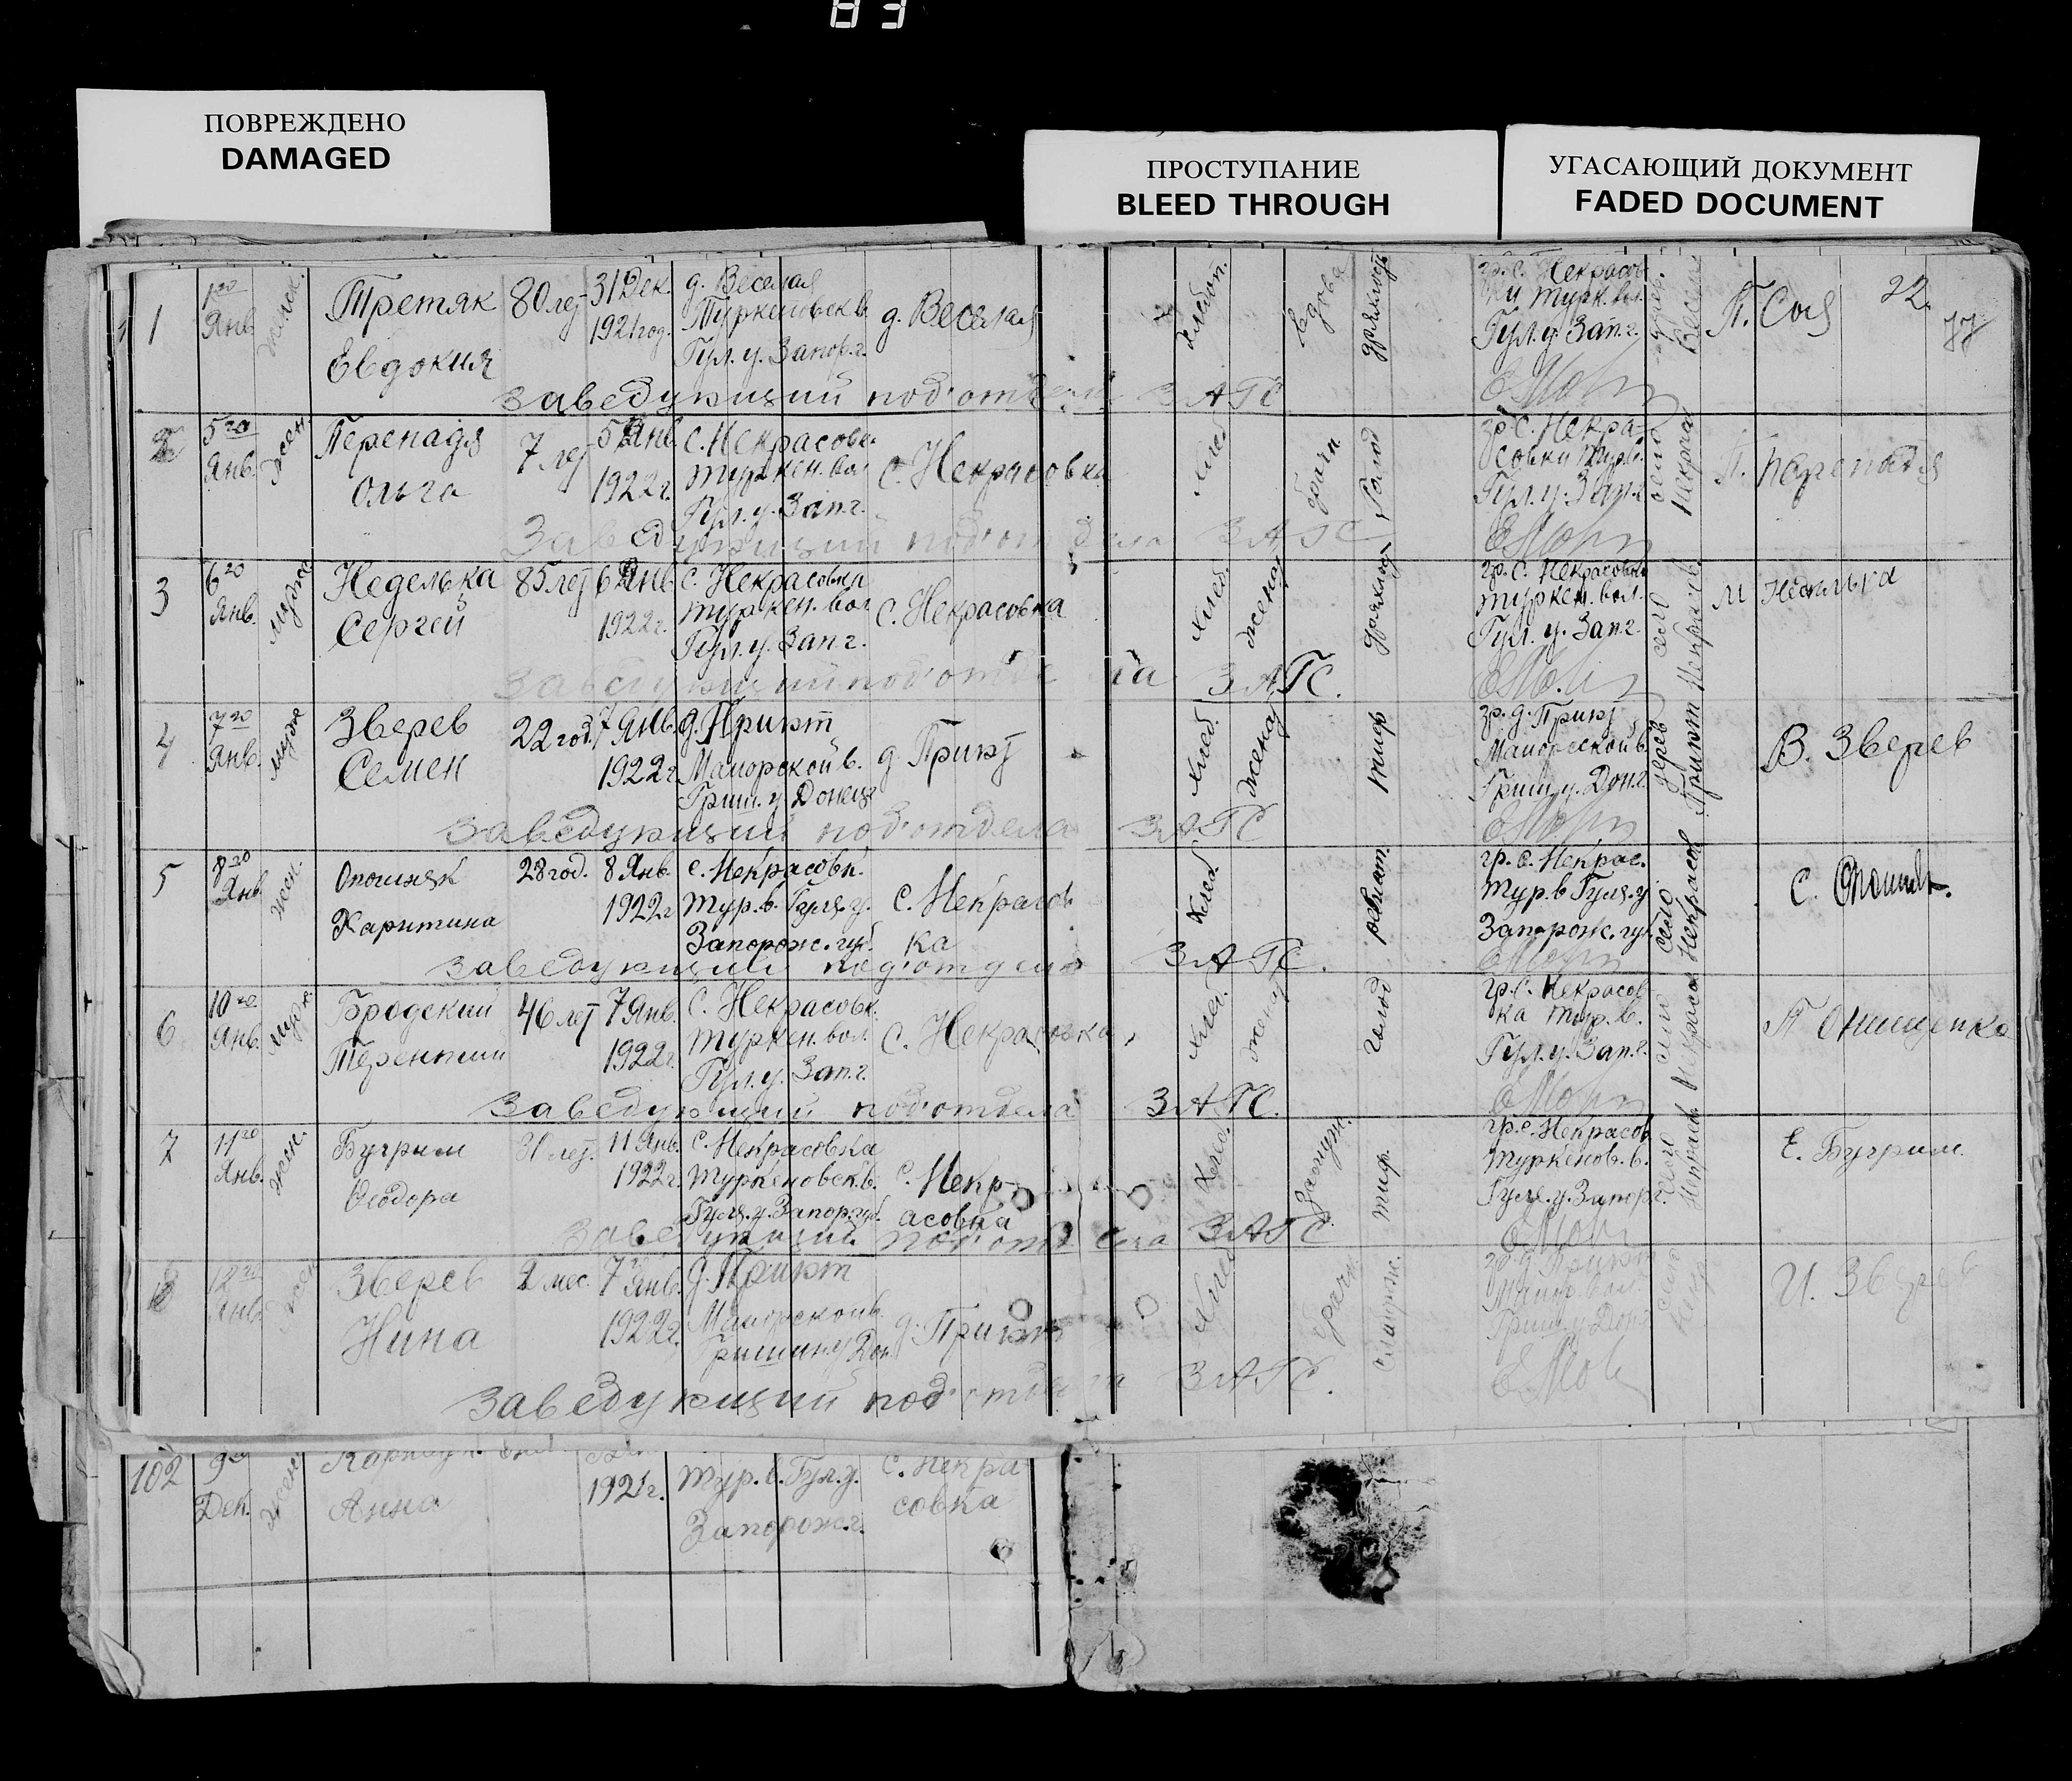 83
ПОВРЕЖДЕНО
DAMAGED
ПРОСТУПАНИЕ
BLEED THROUGH
УГАСАЮЩИЙ ДОКУМЕНТ
FADED DOCUMENT
22
77
1
1го Янв.
женск.
Третяк Евдокия
80 лет
31 Дек. 1921 год.
д. Веселая
Туркеновск. в.
Гул. у. Запор. г.
д. Веселая
хлебоп.
вдова
дряхлость
гр. с. Некрасов
ки Турк. вол.
Гул. у. Зап. г.
П. Соя
Заведующий подотдела ЗАГС
2
5го Янв.
жен.
Перепадя Ольга
7 лет
5 Янв. 1922 г.
с. Некрасовк
Туркен. вол
Гул. у. Зап. г.
с. Некрасовка
хлеб
голод
гр. с. Некра
совки Турк.
Гул. у. Зап. г.
село Некрас
П. Перепадя
Заведующий подотдела ЗАГС
3
6го Янв.
мужс
Неделька Сергей
85 лет
6 Янв. 1922 г.
с. Некрасовка
Туркен. вол
Гул. у. Зап. г.
с. Некрасовка
хлеб.
женат
дряхлость
гр. с. Некрасовки
Туркен. вол.
Гул. у. Зап. г.
село Некрасов
М Неделька
Заведующий подотдела ЗАГС.
4
7го Янв.
муж
Зверев Семен
22 год.
7 Янв. 1922 г
д. Приют
Маиорской в.
Гриш. у. Донецк
д. Приют
хлеб.
женат
тиф
гр. д. Приют
Маиорской в.
Гриш. у. Дон. г.
дерев Приют
В. Зверев
Заведующий подотдела ЗАГС
5
8го Янв.
жен.
Опошняк
Харитина
28 год.
8 Янв. 1922 г
с. Некрасовк.
Тур. в. Гуля. у.
Запорож. губ.
с. Некрасов
ка
хлеб
гр. с. Некрас.
Тур. в Гуля. у
Запорож. гу
село Некрасов
С. Опошня.
Заведующий подотдела ЗАГС.
6
10го Янв.
муж.
Бродский
Терентий
46 лет
7 Янв. 1922 г.
с. Некрасовк.
Туркен. вол.
Гул. у. Зап. г.
с. Некрасовка
хлеб.
женат
голод
гр. с. Некрасов
ка Тур. в.
Гул. у. Зап. г.
село Некрасов
П Онищенко
Заведующий подотдела ЗАГС.
7
11го Янв.
жен.
Бугрим
Феодора
31 лет.
11 Янв. 1922 г.
с. Некрасовка
Туркеновск. в.
Гуля. у. Запор. губ.
с. Некр
асовка
хлеб.
замуж.
тиф.
гр. с. Некрасов
Туркенов. в.
Гуля. у. Запор. г.
село Некрасов
Е. Бугрим.
Заведующий подотдела ЗАГС
8
12го Янв
жен
Зверев
Нина
2 мес.
7го Янв. 1922 г.
д. Приют
Маиорской в.
Гришин. у Дон.
д. Приют
хлеб
гр. д Приют
Маиор вол.
Гриш. у. Дон. г
И. Зверев
Заведующий подотдела ЗАГС.
102
9го Дек.
жен
Анна
1921 г.
Тур. в. Гул. у.
Запорож. г.
с. Некра
совка